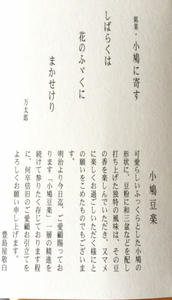 小鳩豆楽
銘菓・小鳩に寄す
しばらくは
花のふゞくに
まかせけり
万太郎
可愛らしいふっくらとした小鳩の
形状に、豆粉と和三盆などを配し
打ち上げた独特の風味は、その豆
の香を楽しんでいただき、又マメ
に楽しくお過ごしいただく様にと
の願いをこめたものでもございま
す。
明治より今日迄、ご愛顧賜ってお
ります「小鳩豆楽」一層の精進を
続けて参りたく存じております程
に、何卒倍旧のご愛顧お引立てを
よろしくお願い申し上げます。
豊島屋敬白